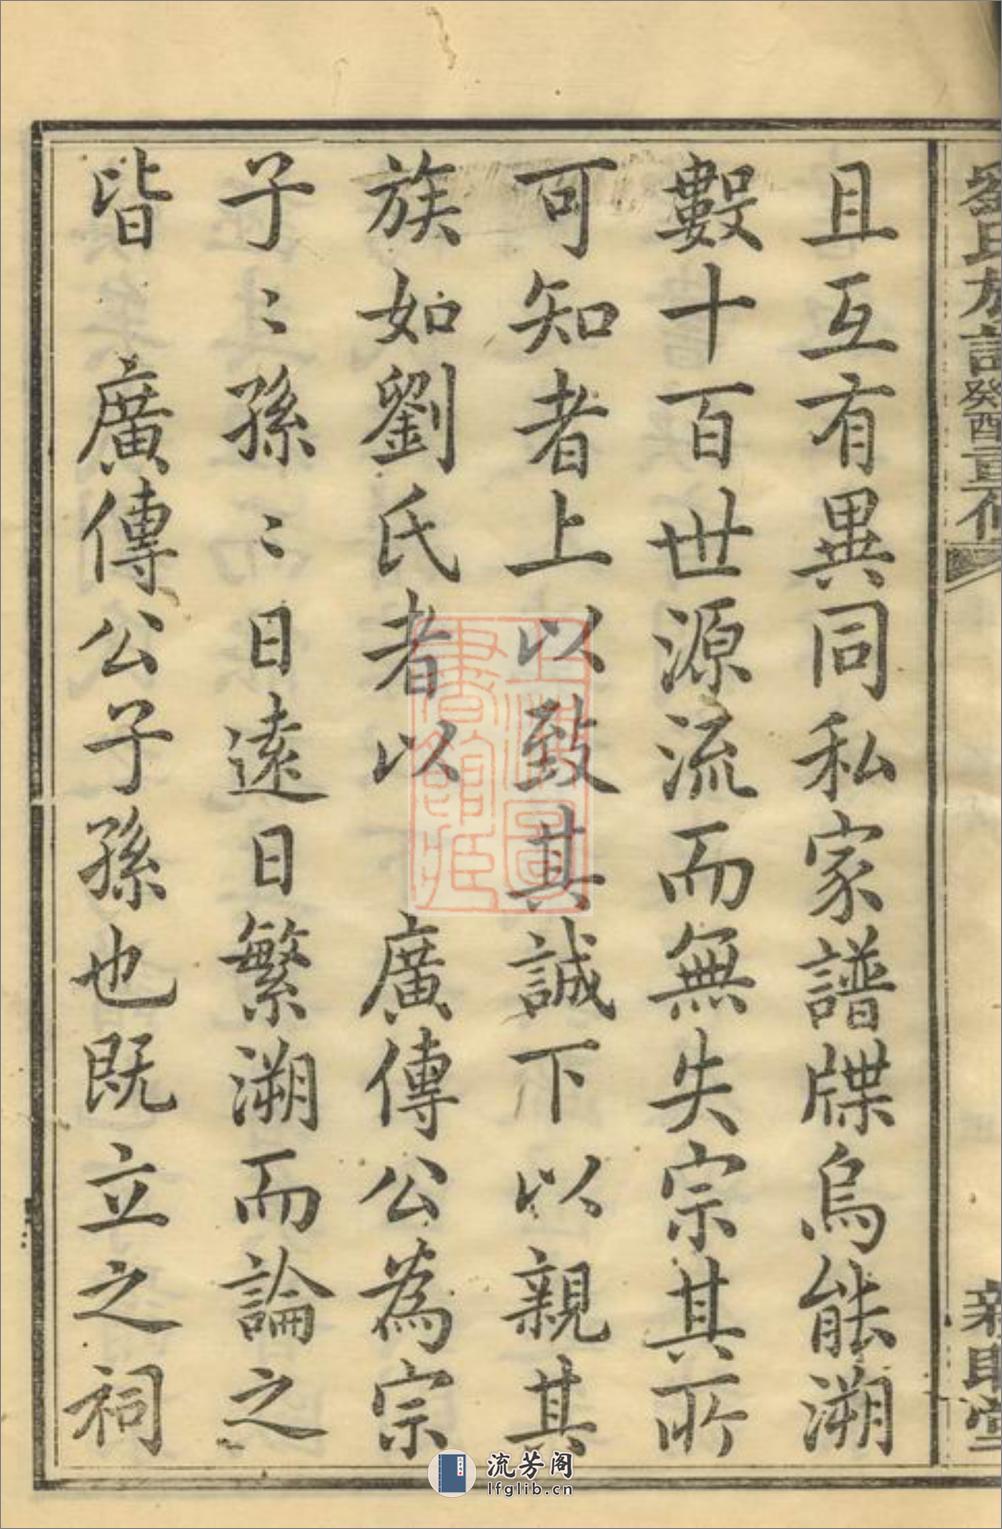 劉氏族譜癸酉重修
且互有異同私家譜牒烏能溯
數十百世源流而無失宗其所
可知者上以致其誠下以親其
族如劉氏者以 廣傳公為宗
子〻孫〻日遠日繁溯而論之
皆 廣傳公子孫也既立之祠
上海圖書館藏
流芳阁
lfglib.cn